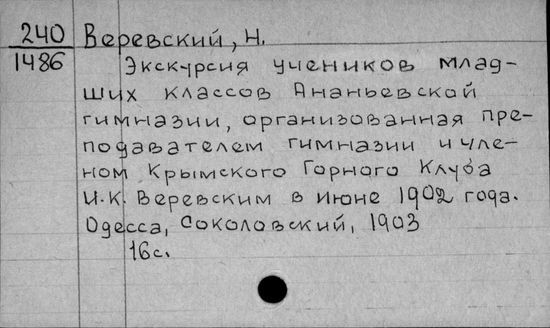 240 Веревский, Н.
1486 Экскурсия учеников млад-
ших классов Ананьевской
гимназии, организованная пре-
подавателем гимназии и чле-
ном Крымского Горного Клуба
И.К. Веревским в июне 1902 года.
Одесса, Соколовский, 1903
16с.